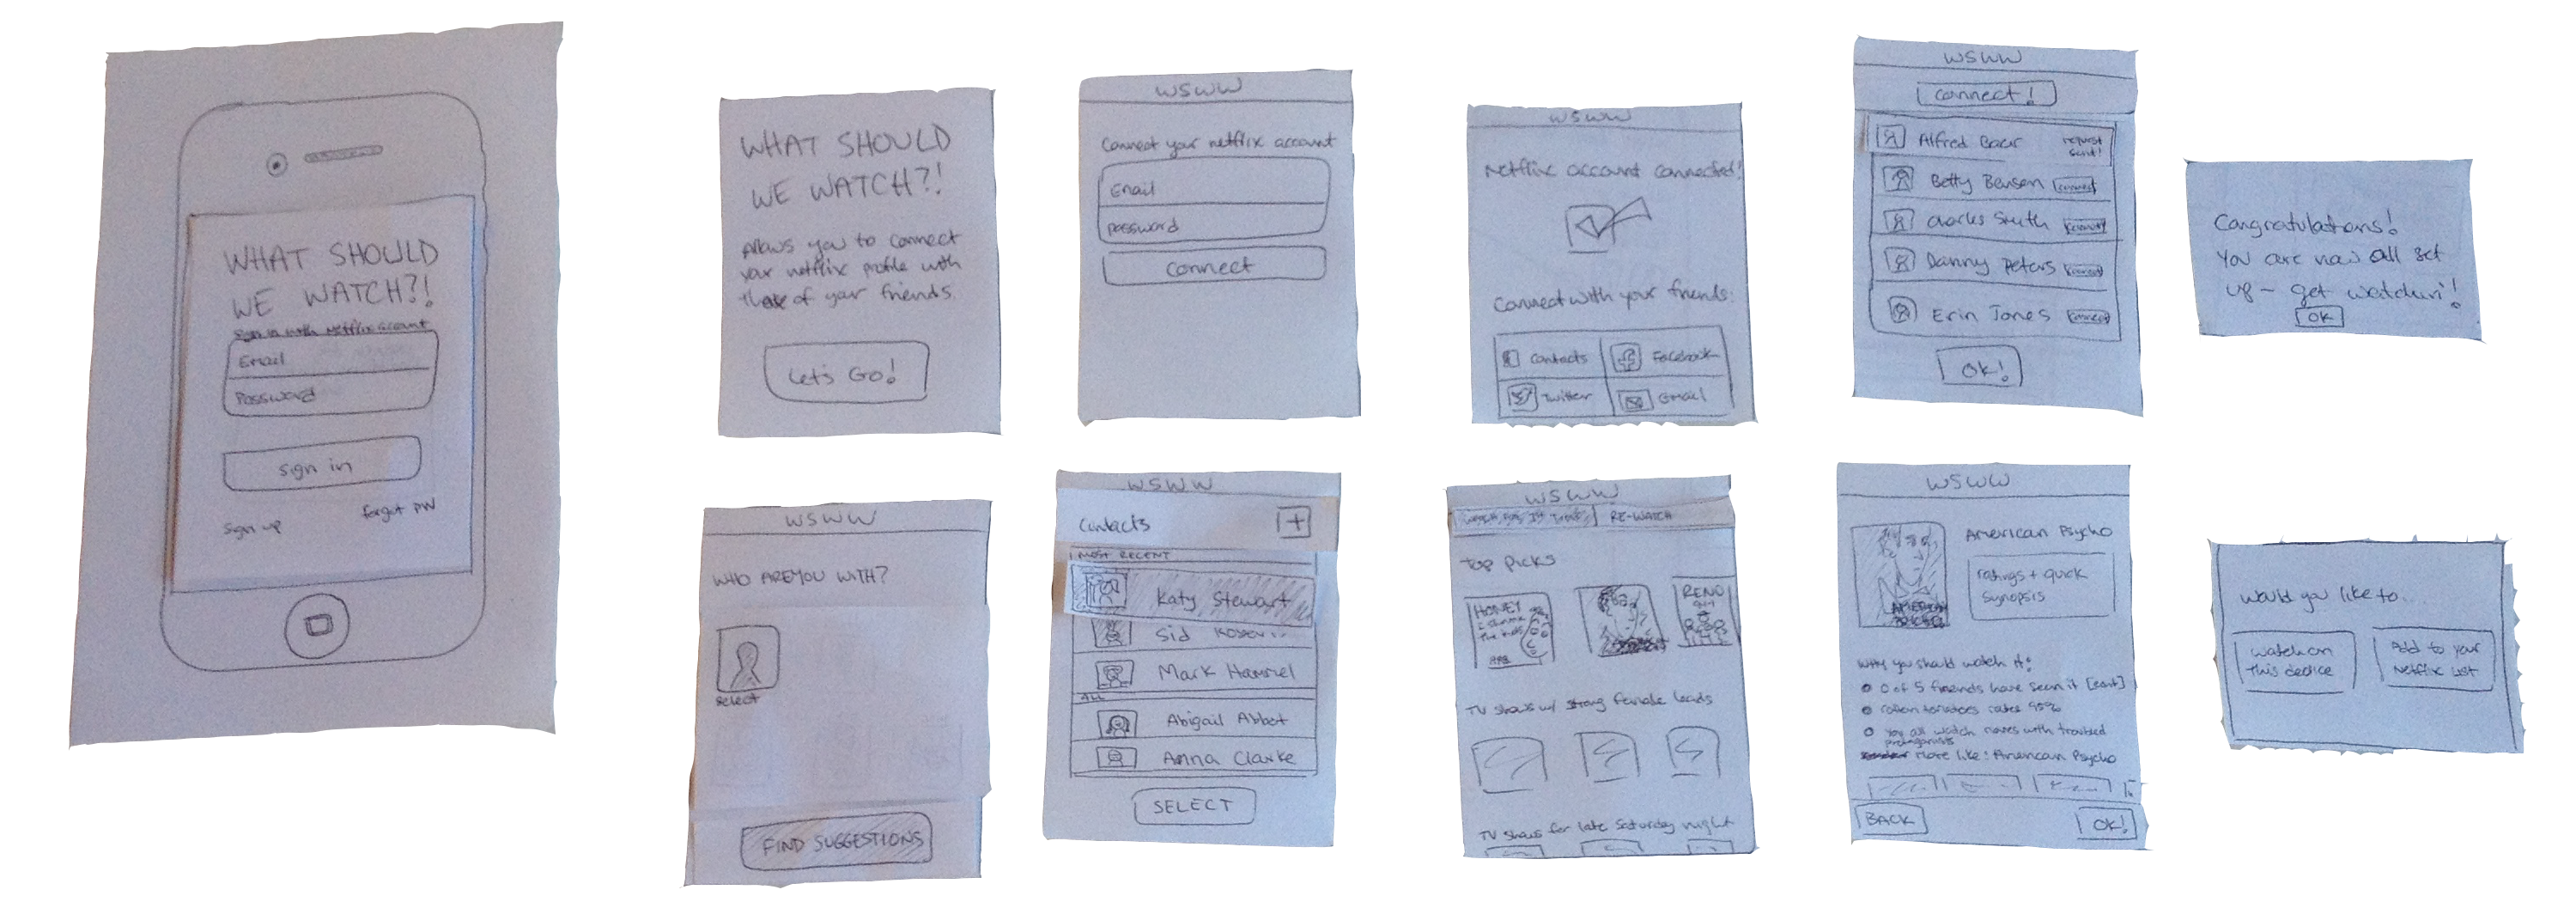 WHAT SHOULD
WE WATCH?!
Sign in with Netflix account
Email
Password
sign in
sign up
forgot PW
WHAT SHOULD
WE WATCH?!
Allows you to connect
your netflix profile with
those of your friends.
Let's Go!
WSWW
Connect your netflix account
Email
password
connect
WSWW
Netflix account connected!
Connect with your friends:
Contacts
Facebook
Twitter
Email
WSWW
connect!
Alfred Baur
request
sent!
Betty Benson
connect
Charles Smith
connect
Danny Peters
connect
Erin Jones
connect
OK!
Congratulations!
You are now all set
up - get watchin'!
OK
WSWW
WHO ARE YOU WITH?
select
FIND SUGGESTIONS
WSWW
Contacts
+
MOST RECENT
Katy Stewart
Sid
Mark Hammel
ALL
Abigail Abbot
Anna Clarke
SELECT
WSWW
RE-WATCH
Top Picks
HONEY
I shrunk
The kids
RENO
TV shows w/ strong female leads
TV shows for late Saturday night
WSWW
American Psycho
ratings + quick
synopsis
AMERICAN
PSYCHO
Why you should watch it:
0 of 5 friends have seen it
rotten tomatoes rates 95%
You all watch movies with troubled
protagonists
More like: American Psycho
BACK
OK!
Would you like to...
watch on
This device
Add to your
Netflix List